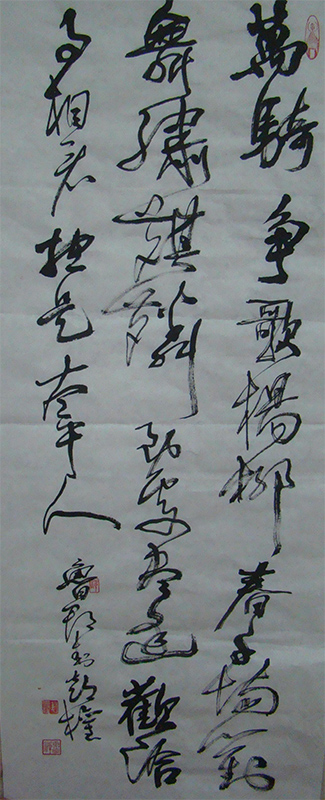 萬騎争歌楊柳春千場對
舞繡騏驎到處盡逢歡洽
事相看總是太平人